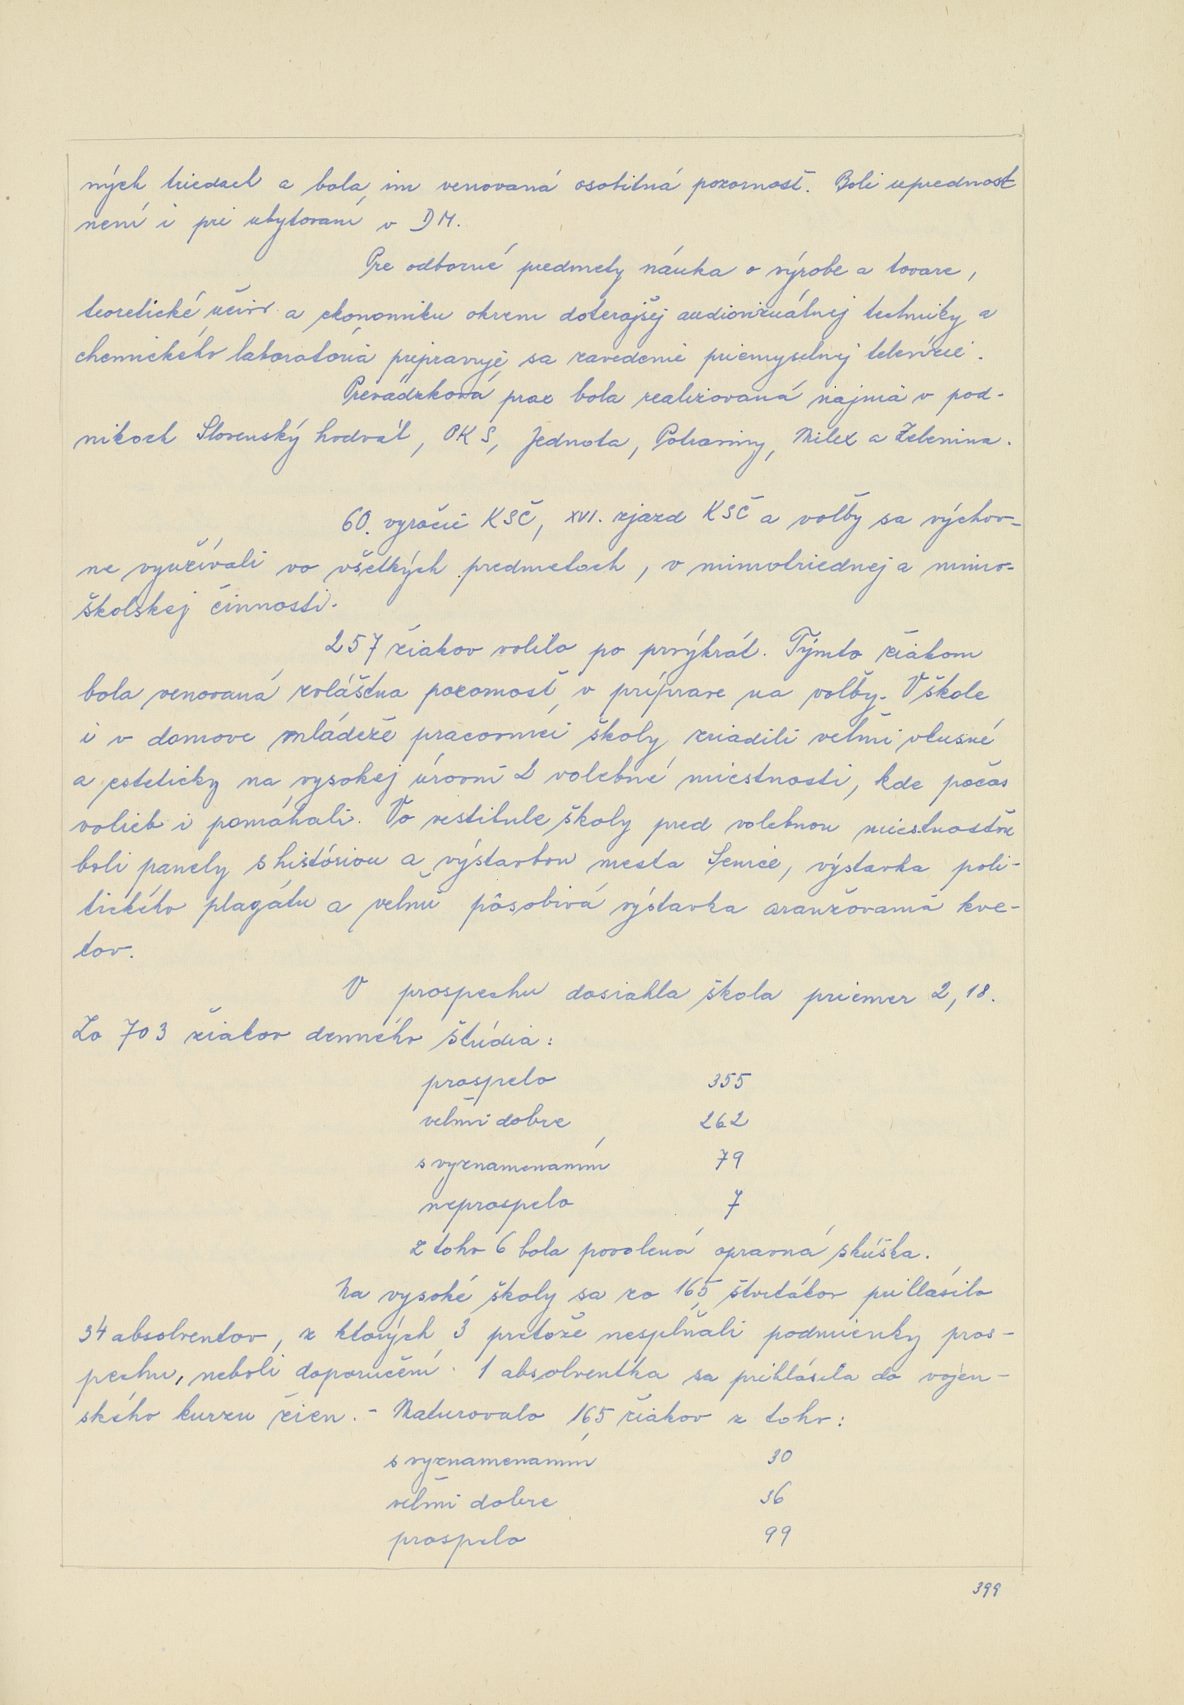 ných triedach a bola im venovaná osobitná pozornosť. Boli uprednost
není i pri ubytovaní v DM.
Pre odborné predmety náuka o výrobe a tovare,
teoretické učivo a ekonomiku okrem doterajšej audiovizuálnej techniky a
chemického laboratória pripravuje sa zavedenie priemyselnej televízie.
Prevádzková prax bola realizovaná najmä v pod-
nikoch Slovenský hodváb, OKS, Jednota, Potraviny, Milex a Zelenina.
60. výročie KSČ, XVI. zjazd KSČ a voľby sa výchov-
ne využívali vo všetkých predmetoch, v mimotriednej a mimo-
školskej činnosti.
257 žiakov volilo po prvýkrát. Týmto žiakom
bola venovaná zvláštna pozornosť v príprave na voľby. V škole
i v domove mládeže pracovníci školy zriadili veľmi vkusné
a esteticky na vysokej úrovni 2 volebné miestnosti, kde počas
volieb i pomáhali. Vo vestibule školy pred volebnou miestnosťou
boli panely s históriou a výstavbou mesta Senice, výstavka poli-
tického plagátu a veľmi pôsobivá výstavka aranžovaná kve-
tov.
V prospechu dosiahla škola priemer 2,18.
Zo 703 žiakov denného štúdia:
prospelo 355
veľmi dobre 262
s vyznamenaním 79
neprospelo 7
z toho 6 bola povolená opravná skúška.
Na vysoké školy sa zo 165 štvrtákov prihlásilo
34 absolventov, z ktorých 3 pretože nespĺňali podmienky pros-
pechu, neboli doporučení. 1 absolventka sa prihlásila do vojen-
ského kurzu žien. - Maturovalo 165 žiakov z toho:
s vyznamenaním 30
veľmi dobre 36
prospelo 99
399